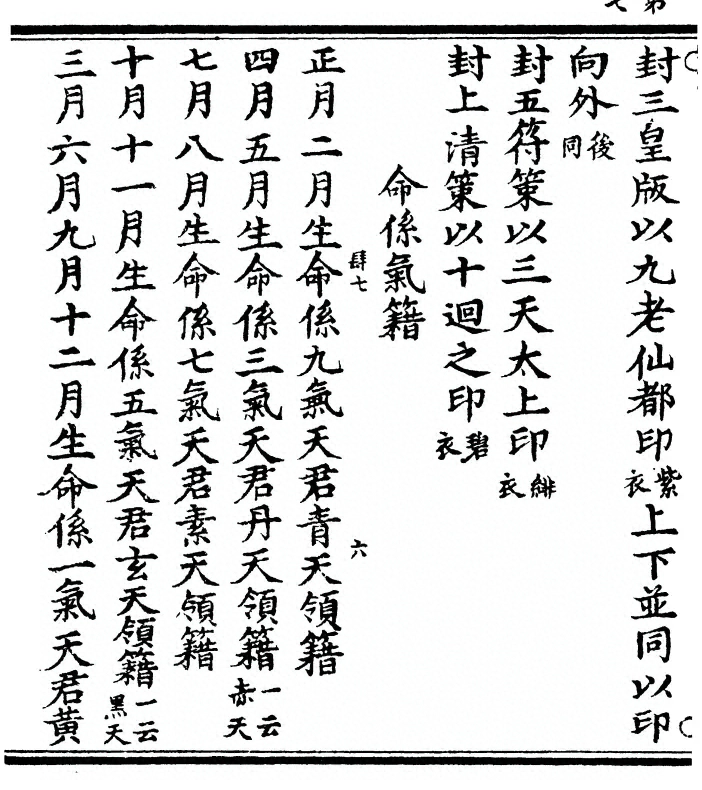 封三皇版以九老仙都印紫衣上下並同以印
向外後同
封五符策以三天太上印緋衣
封上清策以十迴之印碧衣
命係氣籍
肆七 六
正月二月生命係九氣天君青天領籍
四月五月生命係三氣天君丹天領籍一云赤天
七月八月生命係七氣天君素天領籍
十月十一月生命係五氣天君玄天領籍一云黑天
三月六月九月十二月生命係一氣天君黄